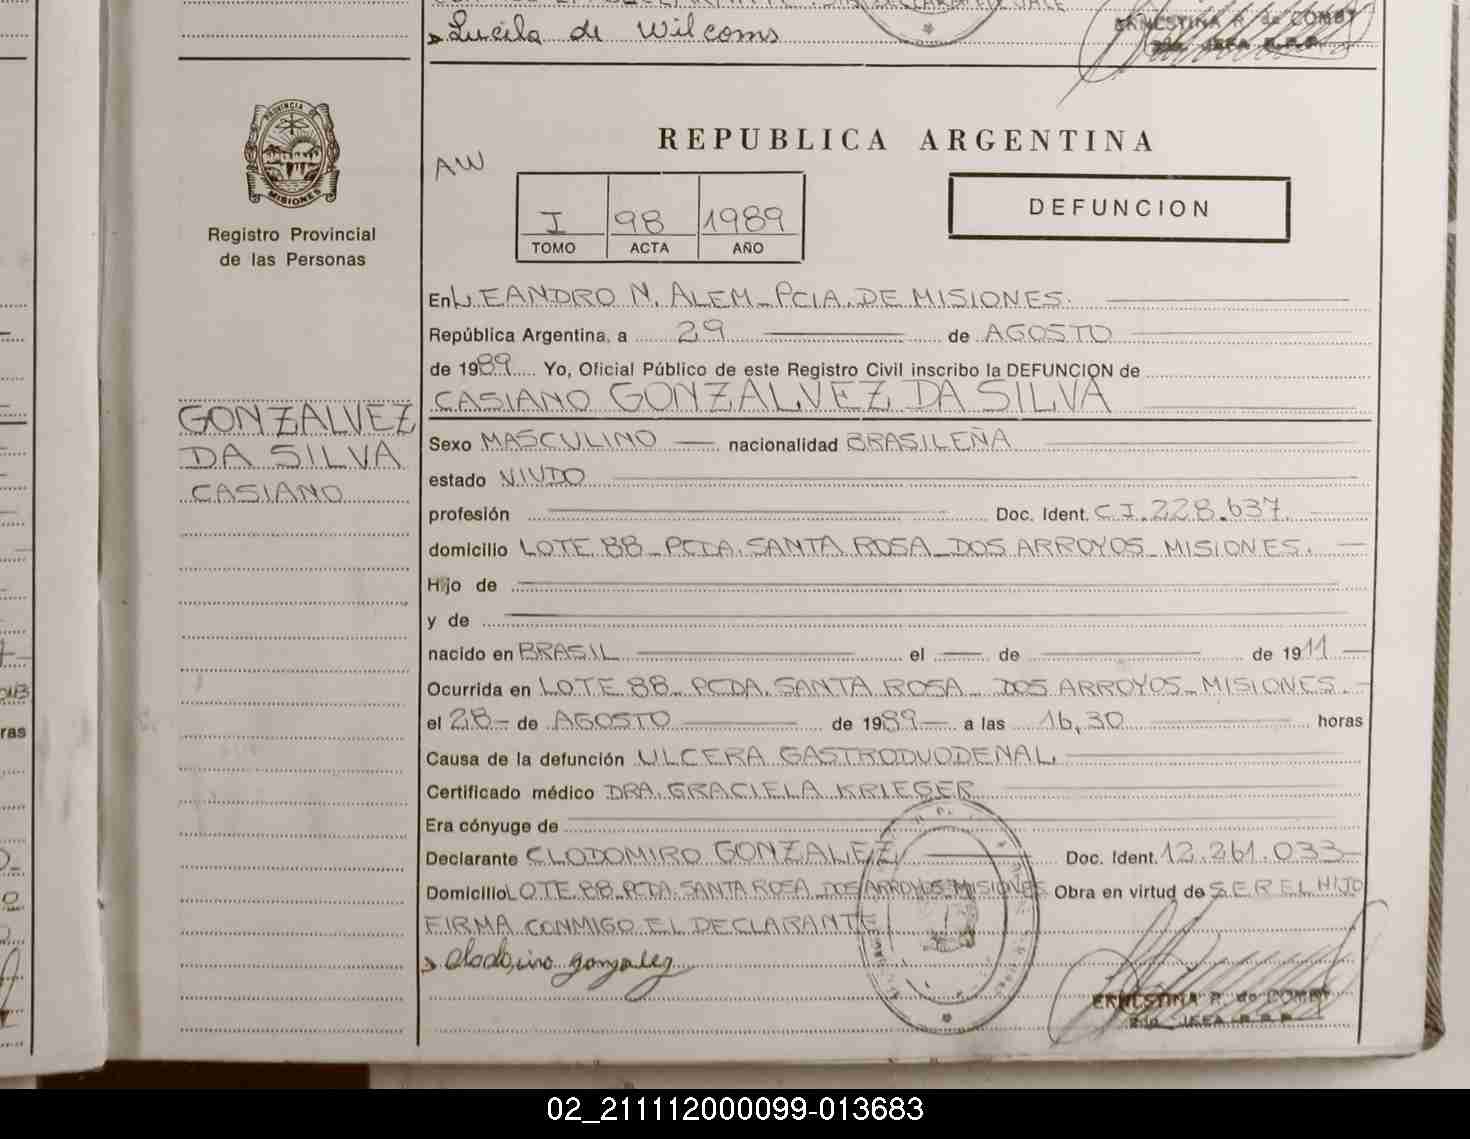 Lucila de Wilcoms
ERNESTINA R. de COMBY
2da. JEFA R.P.P.
PROVINCIA DE
MISIONES
Registro Provincial
de las Personas
GONZALVEZ
DA SILVA
CASIANO
AW
REPUBLICA ARGENTINA
I 98 1989
TOMO ACTA AÑO
DEFUNCION
En L. EANDRO N. ALEM - PCIA. DE MISIONES.
República Argentina, a 29 de AGOSTO
de 1989 Yo, Oficial Público de este Registro Civil inscribo la DEFUNCION de
CASIANO GONZALVEZ DA SILVA
Sexo MASCULINO nacionalidad BRASILEÑA
estado VIUDO
profesión Doc. Ident. C.I. 228.637.
domicilio LOTE 88 - PCDA. SANTA ROSA - DOS ARROYOS - MISIONES.
Hijo de
y de
nacido en BRASIL el de de 1911
Ocurrida en LOTE 88 - PCDA. SANTA ROSA - DOS ARROYOS - MISIONES.
el 28 - de AGOSTO de 1989 a las 16,30 horas
Causa de la defunción ULCERA GASTRODUODENAL
Certificado médico DRA. GRACIELA KRIESER
Era cónyuge de
Declarante CLODOMIRO GONZALEZ Doc. Ident. 12.261.033
Domicilio LOTE 88 PCDA. SANTA ROSA DOS ARROYOS MISIONES Obra en virtud de SER EL HIJO
FIRMA CONMIGO EL DECLARANTE
Clodomiro gonzalez
ERNESTINA R. de COMBY
2da. JEFA R.P.P.
02_211112000099-013683